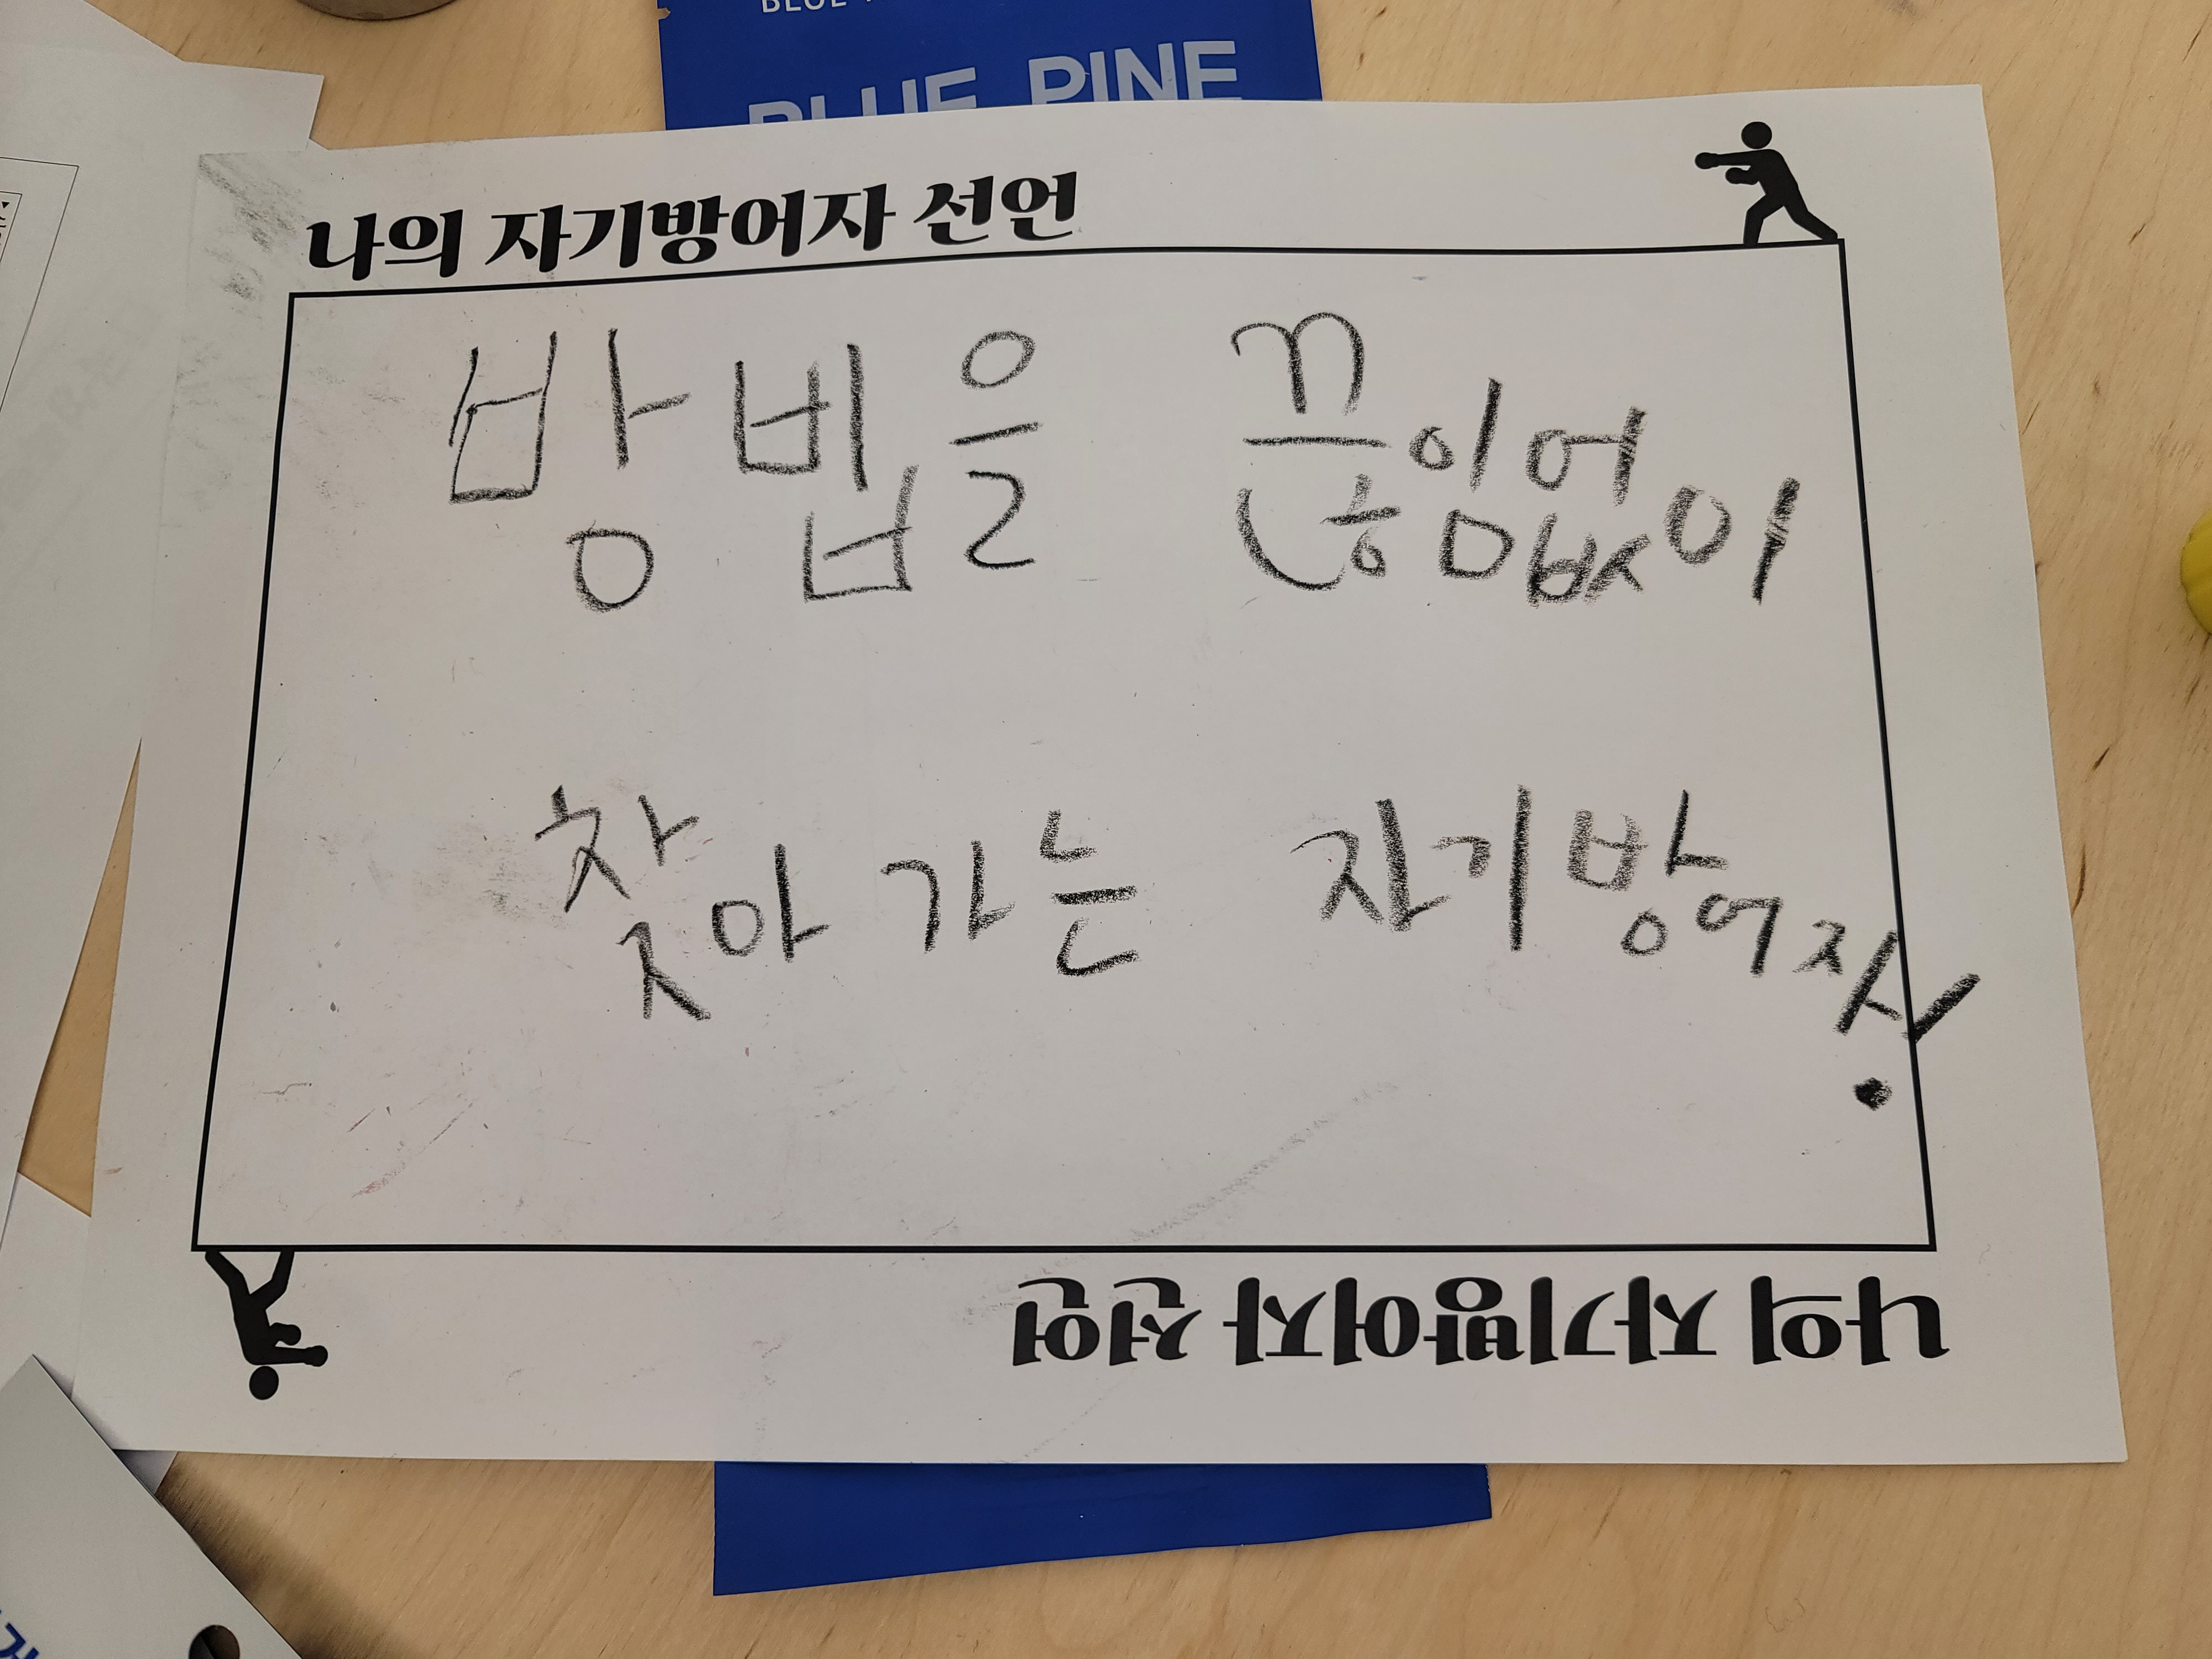 BLUE PINE
나의 자기방어자 선언
방법을 끊임없이
찾아가는 자기방어자.
나의 자기방어자 선언